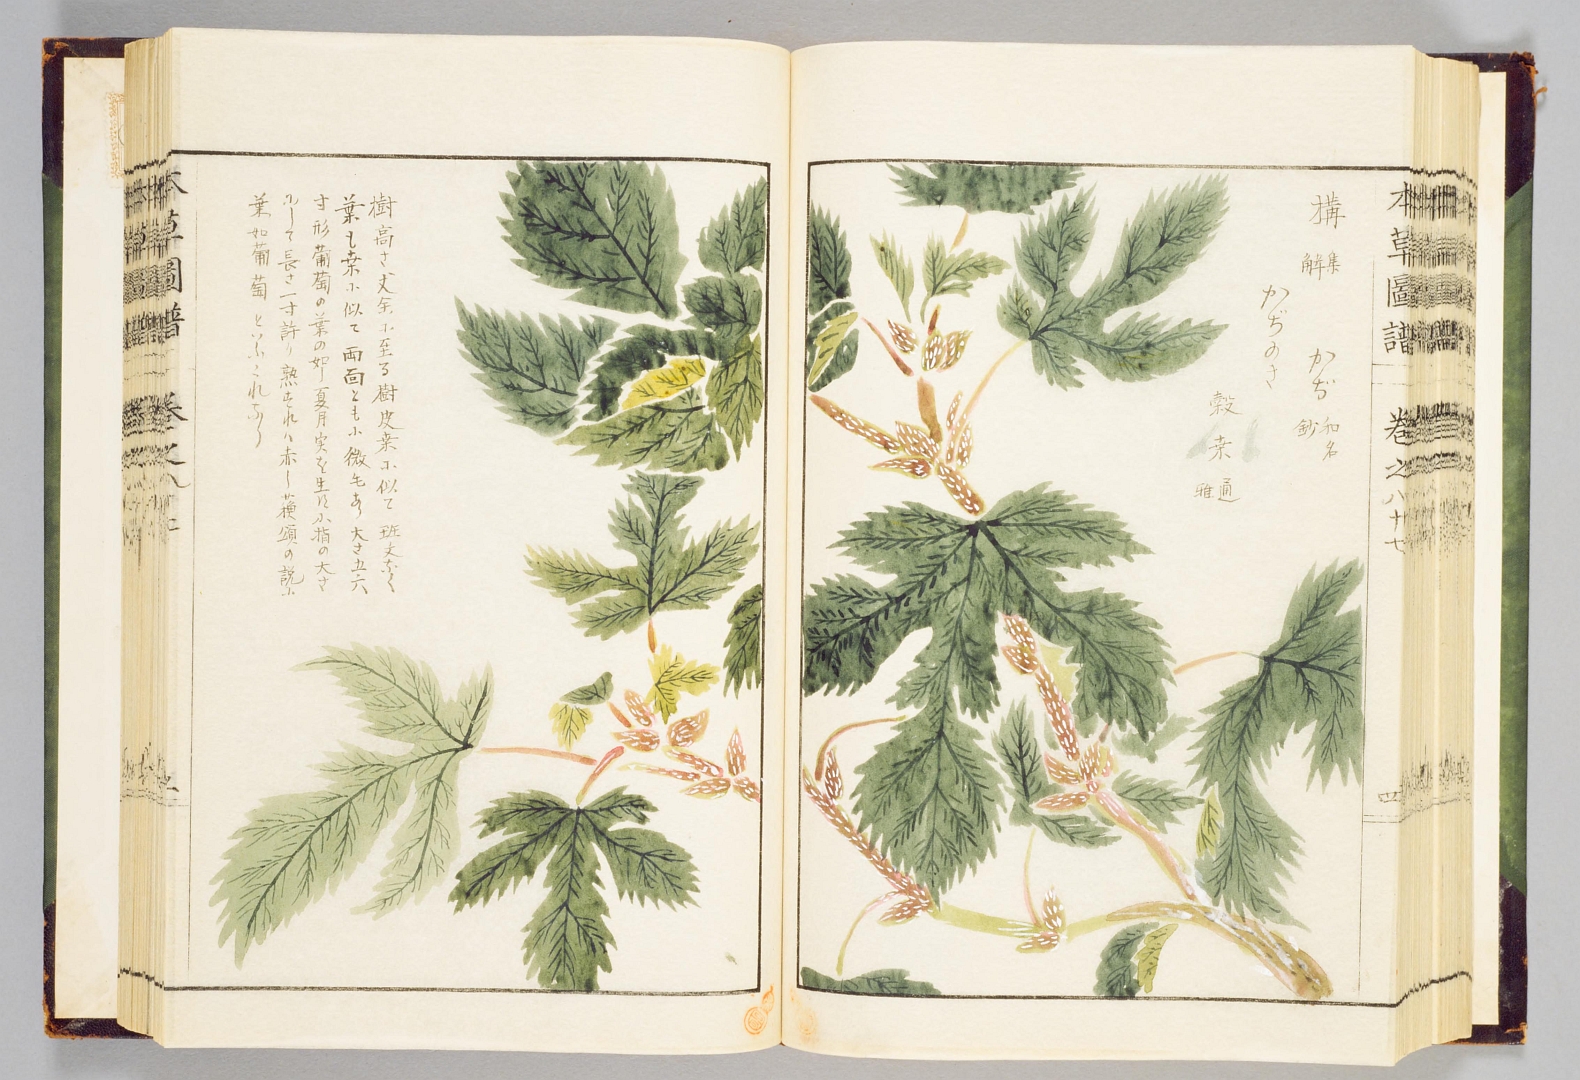 本草圖譜 巻之八十七
四
構 集解
かぢのき
かぢ 和名鈔
穀桒 通雅
樹高さ丈余に至る樹皮桒に似て斑文あり
葉も桒に似て両面ともに微毛あり大さ五六
寸形葡萄の葉の如し夏月実を生ず小指の大さ
にして長さ一寸許り熟すれハ赤し蘓頌の説に
葉如葡萄といふこれなり
本草圖譜 巻之八十七